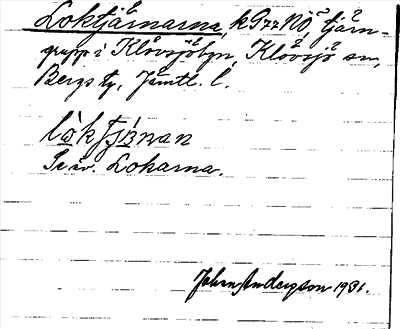 Loktjärnarna, kG77NÖ, tjärn-
grupp i Klövsjöbyn, Klövsjö sn,
Bergs tg, Jämtl. l.
Se äv. Lokarna.
John Andersson 1931.